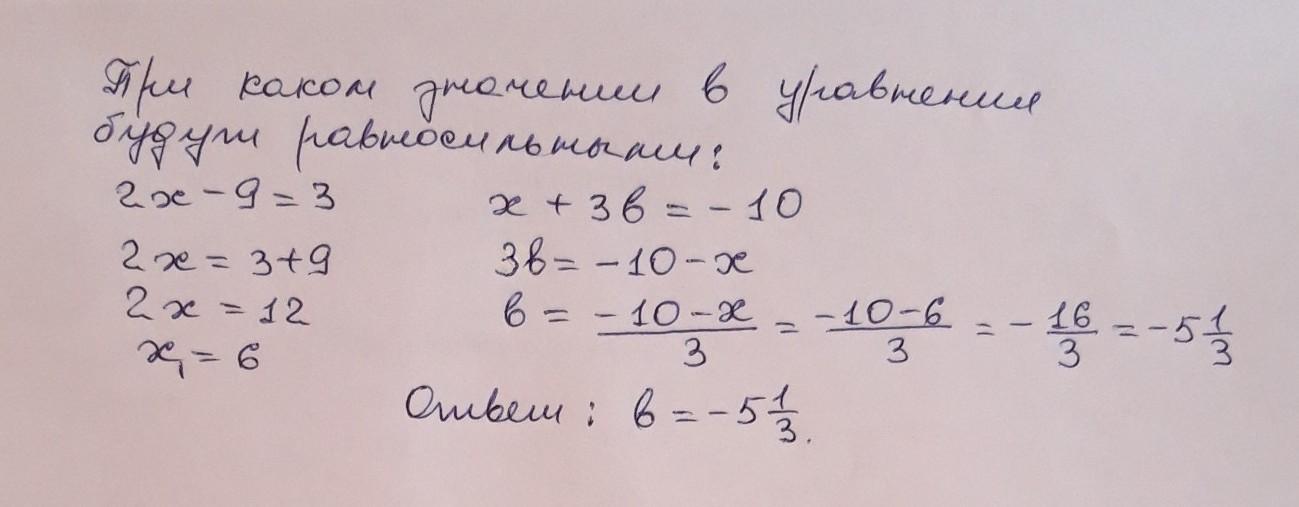 При каком значении в уравнения
будут равносильными:
2x - 9 = 3 x + 3в = - 10
2x = 3+9 3в = -10 - x
2x = 12 в = \frac{-10-x}{3} = \frac{-10-6}{3} = -\frac{16}{3} = -5\frac{1}{3}
x₁ = 6
Ответ: в = -5\frac{1}{3}.